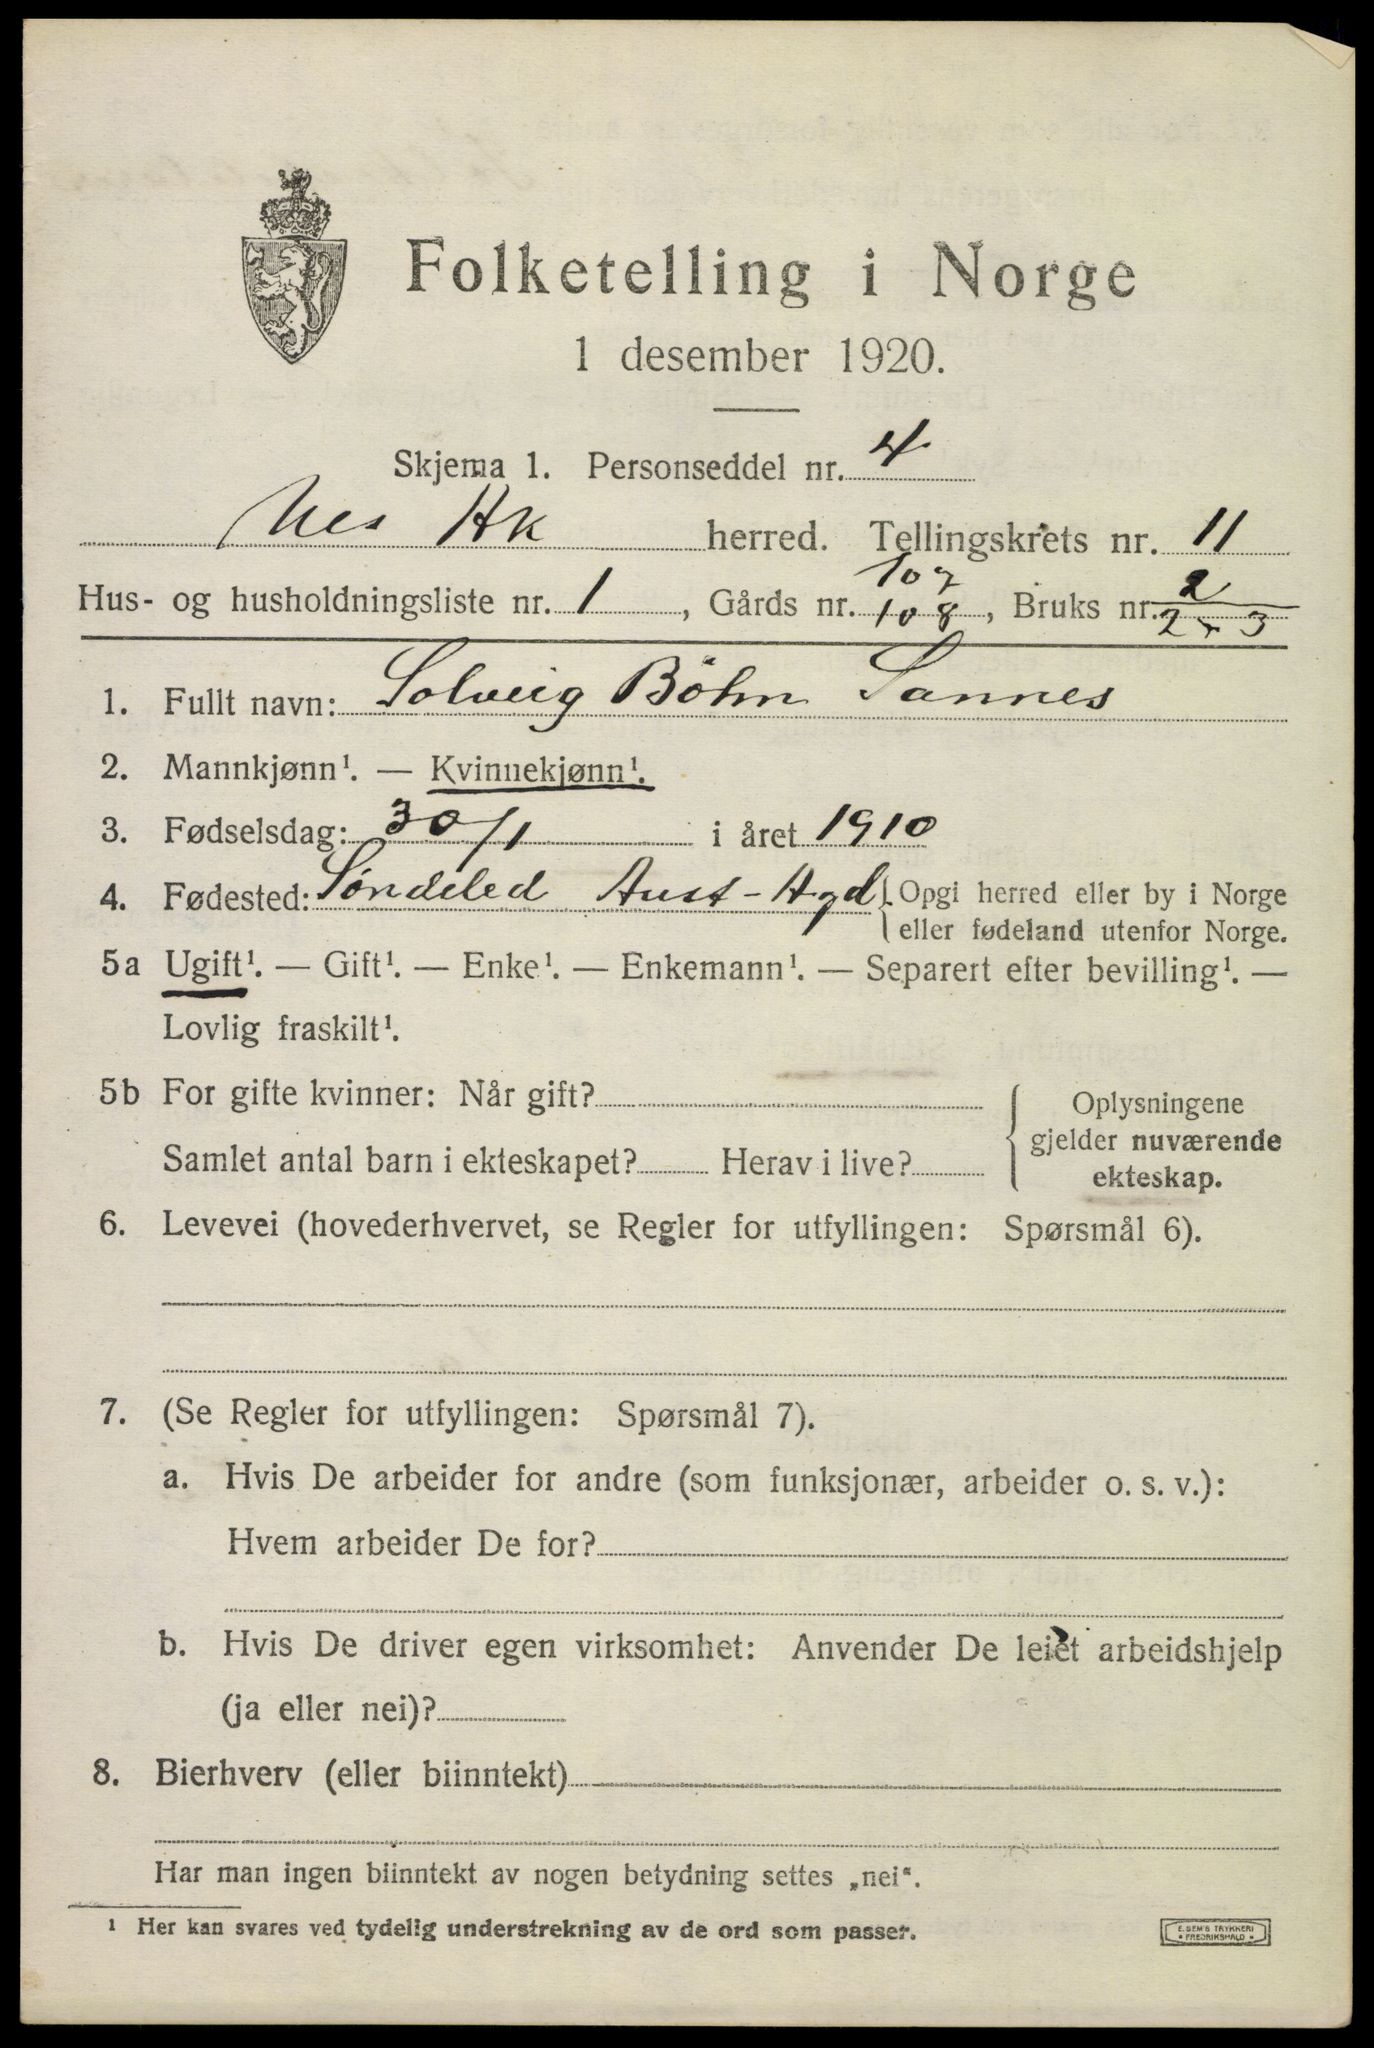 Folketelling i Norge
1 desember 1920.
Skjema 1. Personseddel nr. 4
Nes Hk herred. Tellingskrets nr. 11
Hus- og husholdningsliste nr. 1, Gårds nr. 107 108, Bruks nr. 2 2 + 3
1. Fullt navn: Solveig Böhn Sannes
2. Mannkjønn¹. — Kvinnekjønn¹.
3. Fødselsdag: 30/1 i året 1910
4. Fødested: Søndeled Aust-Agd. { Opgi herred eller by i Norge
eller fødeland utenfor Norge.
5a Ugift¹. — Gift¹. — Enke¹. — Enkemann¹. — Separert efter bevilling¹. —
Lovlig fraskilt¹.
5b For gifte kvinner: Når gift?
Samlet antal barn i ekteskapet? Herav i live?
Oplysningene
gjelder nuværende
ekteskap.
6. Levevei (hovederhvervet, se Regler for utfyllingen: Spørsmål 6).
7. (Se Regler for utfyllingen: Spørsmål 7).
a. Hvis De arbeider for andre (som funksjonær, arbeider o. s. v.):
Hvem arbeider De for?
b. Hvis De driver egen virksomhet: Anvender De leiet arbeidshjelp
(ja eller nei)?
8. Bierhverv (eller biinntekt)
Har man ingen biinntekt av nogen betydning settes „nei“.
¹ Her kan svares ved tydelig understrekning av de ord som passer.
E. SEM'S TRYKKERI
• FREDRIKSHALD •